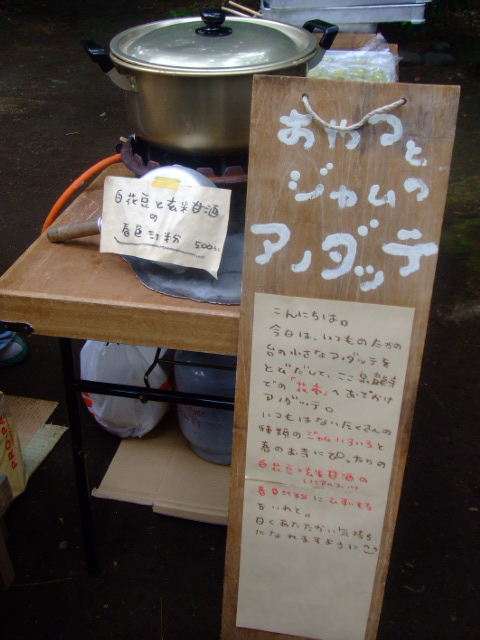 おやつと
ジャムの
アノダッテ
白花豆と玄米甘酒
の
春色汁粉 500
こんにちは。
今日は、いつものたかの
台の小さなアノダッテを
とびだして、ここ
での「花市」へおでかけ
アノダッテ。
いつもはないたくさんの
種類のジャムいろいろと
春のお寺にぴったりの
白花豆と玄米甘酒の
春色汁粉に
をいれて。
甘くあたたかい気持ち
になれますように
PROPA